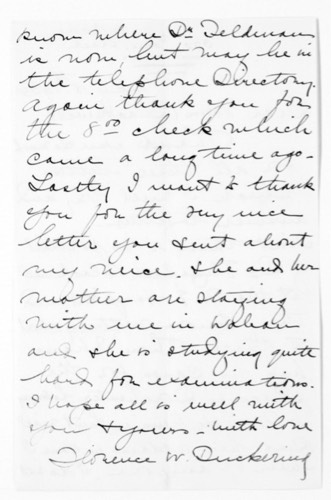 know where Dr. Feldman
is now, but may be in
the telephone Directory.
Again thank you for
the 8.00 check which
came a long time ago -
Lastly I want to thank
you for the very nice
letter you sent about
my neice. She and her
mother are staying
with me in Waban
and she is studying quite
hard for examinations.
I hope all is well with
you & yours - with love
Florence W. Duckering